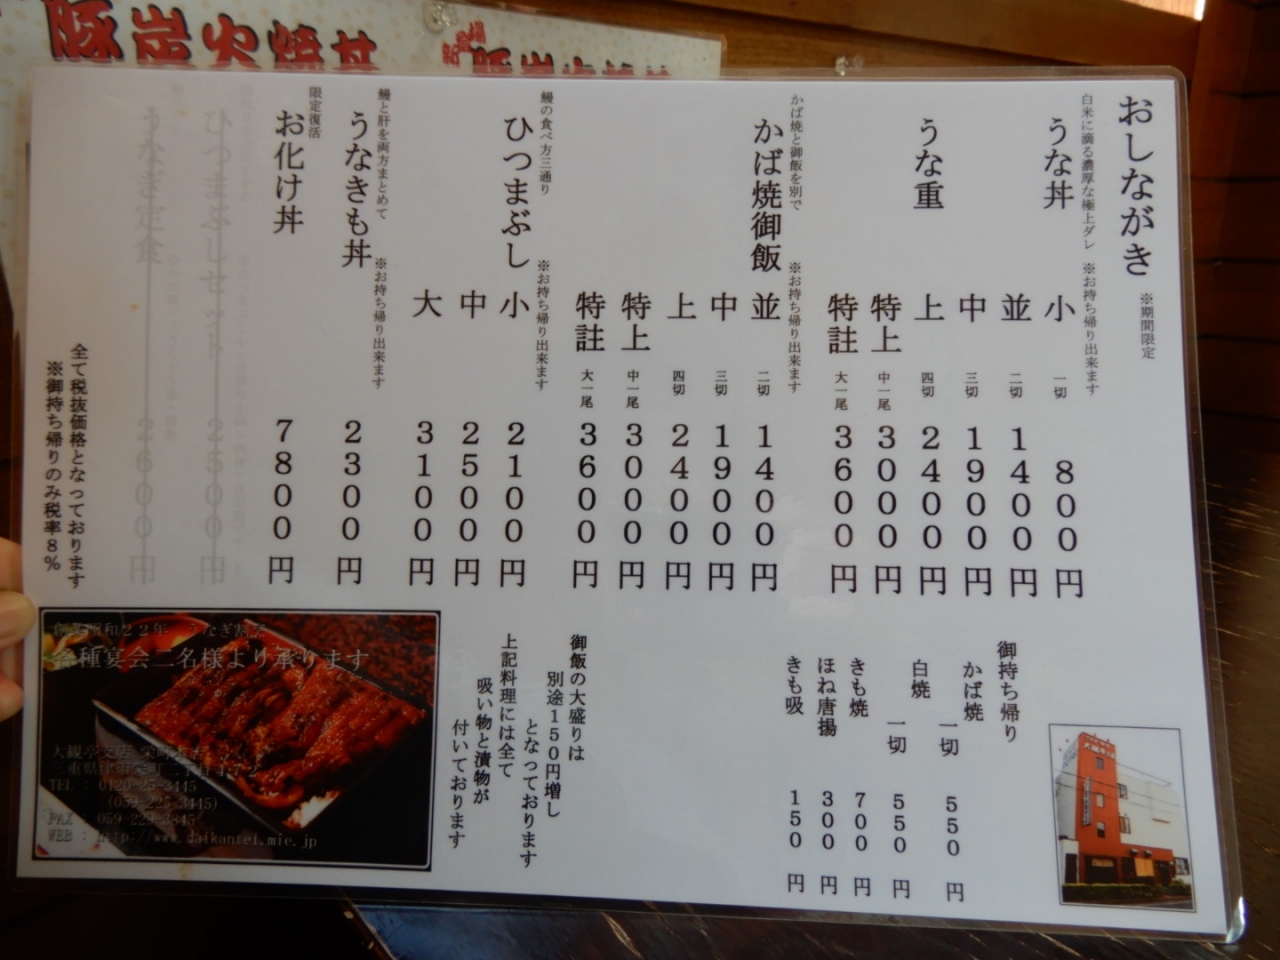 豚炭火焼丼
おしながき ※期間限定
白米に滴る濃厚な極上ダレ ※お持ち帰り出来ます
うな丼 小 一切 800円
並 二切 1400円
中 三切 1900円
うな重 上 四切 2400円
特上 中一尾 3000円
特註 大一尾 3600円
かば焼と御飯を別で ※お持ち帰り出来ます
かば焼御飯 並 二切 1400円
中 三切 1900円
上 四切 2400円
特上 中一尾 3000円
特註 大一尾 3600円
鰻の食べ方三通り ※お持ち帰り出来ます
ひつまぶし 小 2100円
中 2500円
大 3100円
鰻と肝を両方まとめて ※お持ち帰り出来ます
うなきも丼 2300円
限定復活
お化け丼 7800円
ひつまぶしセット 2500円
うなぎ定食 2600円
全て税抜価格となっております
※御持ち帰りのみ税率8%
御持ち帰り
かば焼 一切 550円
白焼 一切 550円
きも焼 700円
ほね唐揚 300円
きも吸 150円
御飯の大盛りは
別途150円増し
となっております
上記料理には全て
吸い物と漬物が
付いております
創業昭和22年 うなぎ割烹
各種宴会二名様より承ります
TEL : 0120-25-3445
(059-225-3445)
FAX : 059-229-3845
WEB : http://www.daikantei.mie.jp